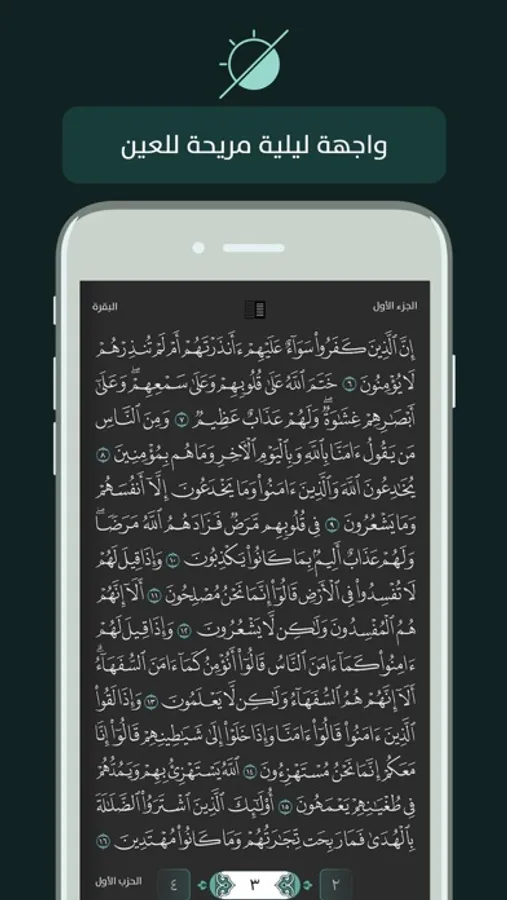 واجهة ليلية مريحة للعين
الجزء الأول
البقرة
إِنَّ ٱلَّذِينَ كَفَرُواْ سَوَآءٌ عَلَيْهِمْ ءَأَنذَرْتَهُمْ أَمْ لَمْ تُنذِرْهُمْ
لَا يُؤْمِنُونَ ٦ خَتَمَ ٱللَّهُ عَلَىٰ قُلُوبِهِمْ وَعَلَىٰ سَمْعِهِمْۖ وَعَلَىٰٓ
أَبْصَٰرِهِمْ غِشَٰوَةٌۖ وَلَهُمْ عَذَابٌ عَظِيمٌ ٧ وَمِنَ ٱلنَّاسِ
مَن يَقُولُ ءَامَنَّا بِٱللَّهِ وَبِٱلْيَوْمِ ٱلْأٓخِرِ وَمَا هُم بِمُؤْمِنِينَ ٨
يُخَٰدِعُونَ ٱللَّهَ وَٱلَّذِينَ ءَامَنُواْ وَمَا يَخْدَعُونَ إِلَّآ أَنفُسَهُمْ
وَمَا يَشْعُرُونَ ٩ فِى قُلُوبِهِم مَّرَضٌ فَزَادَهُمُ ٱللَّهُ مَرَضًاۖ
وَلَهُمْ عَذَابٌ أَلِيمُۢ بِمَا كَانُواْ يَكْذِبُونَ ١٠ وَإِذَا قِيلَ لَهُمْ
لَا تُفْسِدُواْ فِى ٱلْأَرْضِ قَالُوٓاْ إِنَّمَا نَحْنُ مُصْلِحُونَ ١١ أَلَآ إِنَّهُمْ
هُمُ ٱلْمُفْسِدُونَ وَلَٰكِن لَّا يَشْعُرُونَ ١٢ وَإِذَا قِيلَ لَهُمْ
ءَامِنُواْ كَمَآ ءَامَنَ ٱلنَّاسُ قَالُوٓاْ أَنُؤْمِنُ كَمَآ ءَامَنَ ٱلسُّفَهَآءُۗ
أَلَآ إِنَّهُمْ هُمُ ٱلسُّفَهَآءُ وَلَٰكِن لَّا يَعْلَمُونَ ١٣ وَإِذَا لَقُواْ
ٱلَّذِينَ ءَامَنُواْ قَالُوٓاْ ءَامَنَّا وَإِذَا خَلَوْاْ إِلَىٰ شَيَٰطِينِهِمْ قَالُوٓاْ إِنَّا
مَعَكُمْ إِنَّمَا نَحْنُ مُسْتَهْزِءُونَ ١٤ ٱللَّهُ يَسْتَهْزِئُ بِهِمْ وَيَمُدُّهُمْ
فِى طُغْيَٰنِهِمْ يَعْمَهُونَ ١٥ أُوْلَٰٓئِكَ ٱلَّذِينَ ٱشْتَرَوُاْ ٱلضَّلَٰلَةَ
بِٱلْهُدَىٰ فَمَا رَبِحَت تِّجَٰرَتُهُمْ وَمَا كَانُواْ مُهْتَدِينَ ١٦
٢ ٣ ٤ الحزب الأول